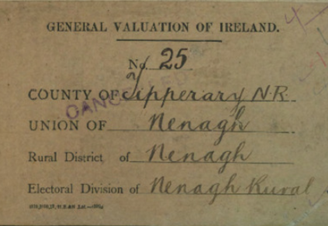 GENERAL VALUATION OF IRELAND.
No. 25
COUNTY OF Tipperary N.R.
UNION OF Nenagh
Rural District of Nenagh
Electoral Division of Nenagh Rural